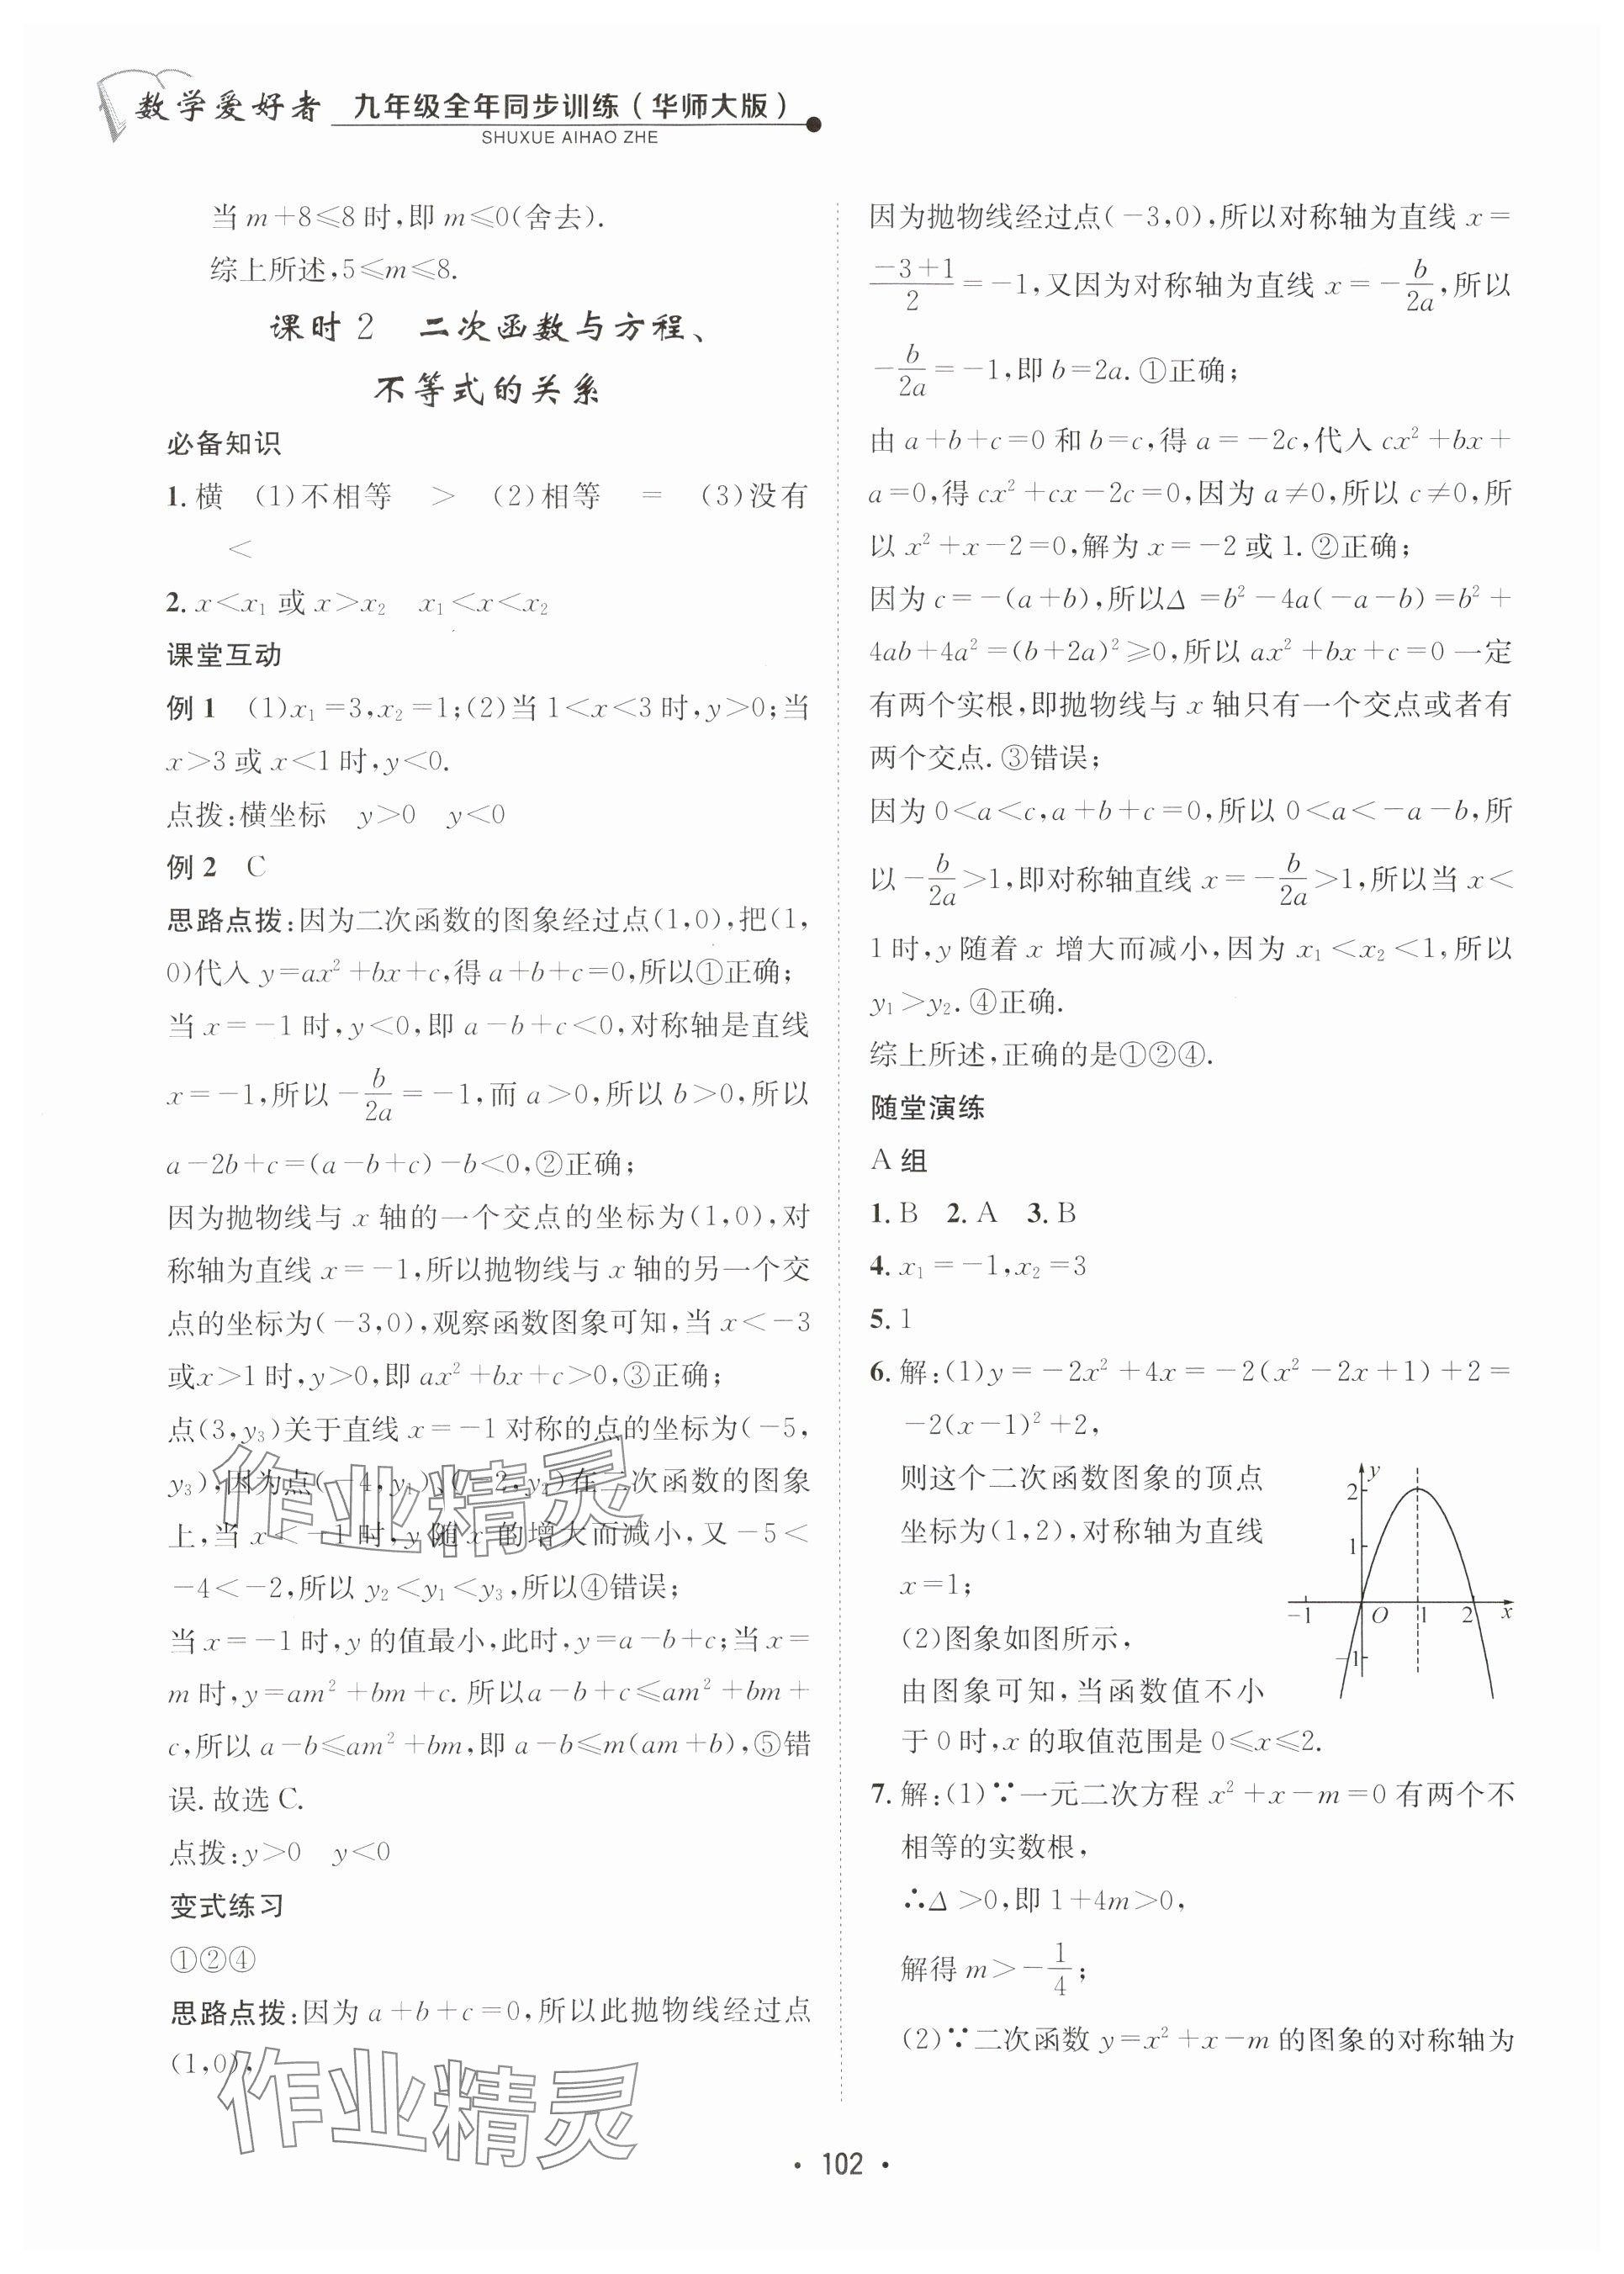 数学爱好者 九年级全年同步训练(华师大版)
SHUXUE AIHAO ZHE
当 m+8≤8 时,即 m≤0(舍去).
综上所述,5≤m≤8.
课时 2 二次函数与方程、
不等式的关系
必备知识
1. 横 (1)不相等 > (2)相等 = (3)没有
<
2. x<x₁ 或 x>x₂ x₁<x<x₂
课堂互动
例 1 (1)x₁=3,x₂=1;(2)当 1<x<3 时,y>0;当
x>3 或 x<1 时,y<0.
点拨:横坐标 y>0 y<0
例 2 C
思路点拨:因为二次函数的图象经过点(1,0),把(1,
0)代入 y=ax²+bx+c,得 a+b+c=0,所以①正确;
当 x=-1 时,y<0,即 a-b+c<0,对称轴是直线
x=-1,所以-b/2a=-1,而 a>0,所以 b>0,所以
a-2b+c=(a-b+c)-b<0,②正确;
因为抛物线与 x 轴的一个交点的坐标为(1,0),对
称轴为直线 x=-1,所以抛物线与 x 轴的另一个交
点的坐标为(-3,0),观察函数图象可知,当 x<-3
或x>1 时,y>0,即 ax²+bx+c>0,③正确;
点(3,y₃)关于直线 x=-1 对称的点的坐标为(-5,
y₃),因为点(-4,y₁),(-2,y₂)在二次函数的图象
上,当 x<-1 时,y 随 x 的增大而减小,又-5<
-4<-2,所以 y₂<y₁<y₃,所以④错误;
当 x=-1 时,y 的值最小,此时,y=a-b+c;当 x=
m 时,y=am²+bm+c.所以a-b+c≤am²+bm+
c,所以 a-b≤am²+bm,即 a-b≤m(am+b),⑤错
误.故选 C.
点拨:y>0 y<0
变式练习
①②④
思路点拨:因为 a+b+c=0,所以此抛物线经过点
(1,0),
因为抛物线经过点(-3,0),所以对称轴为直线 x=
-3+1/2=-1,又因为对称轴为直线 x=-b/2a,所以
-b/2a=-1,即 b=2a.①正确;
由 a+b+c=0 和 b=c,得 a=-2c,代入 cx²+bx+
a=0,得 cx²+cx-2c=0,因为 a≠0,所以 c≠0,所
以 x²+x-2=0,解为 x=-2 或 1.②正确;
因为 c=-(a+b),所以Δ=b²-4a(-a-b)=b²+
4ab+4a²=(b+2a)²≥0,所以 ax²+bx+c=0 一定
有两个实根,即抛物线与 x 轴只有一个交点或者有
两个交点.③错误;
因为 0<a<c,a+b+c=0,所以 0<a<-a-b,所
以-b/2a>1,即对称轴直线 x=-b/2a>1,所以当 x<
1 时,y 随着 x 增大而减小,因为 x₁<x₂<1,所以
y₁>y₂.④正确.
综上所述,正确的是①②④.
随堂演练
A 组
1. B 2. A 3. B
4. x₁=-1,x₂=3
5. 1
6. 解:(1)y=-2x²+4x=-2(x²-2x+1)+2=
-2(x-1)²+2,
则这个二次函数图象的顶点
坐标为(1,2),对称轴为直线
x=1;
(2)图象如图所示,
由图象可知,当函数值不小
于 0 时,x 的取值范围是 0≤x≤2.
y
2
1
-1 O 1 2 x
-1
7. 解:(1)∵一元二次方程 x²+x-m=0 有两个不
相等的实数根,
∴Δ>0,即 1+4m>0,
解得 m>-1/4;
(2)∵二次函数 y=x²+x-m 的图象的对称轴为
作业精灵
作业精灵
· 102 ·